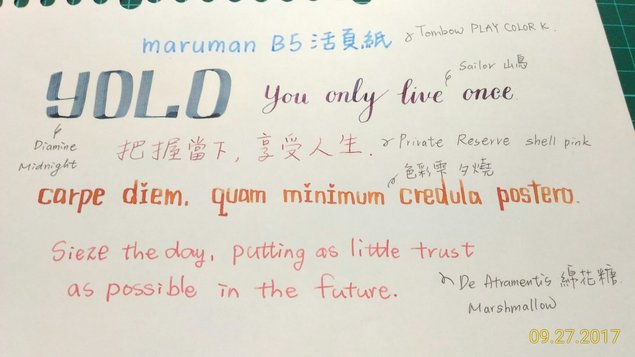 maruman B5 活頁紙
Tombow PLAY COLOR K.
YOLO You only live once.
Sailor 山鳥
Diamine Midnight
把握當下，享受人生.
Private Reserve shell pink
色彩雫 夕燒
carpe diem, quam minimum credula postero.
Sieze the day, putting as little trust
as possible in the future.
De Atramentis 綿花糖
Marshmallow
09.27.2017